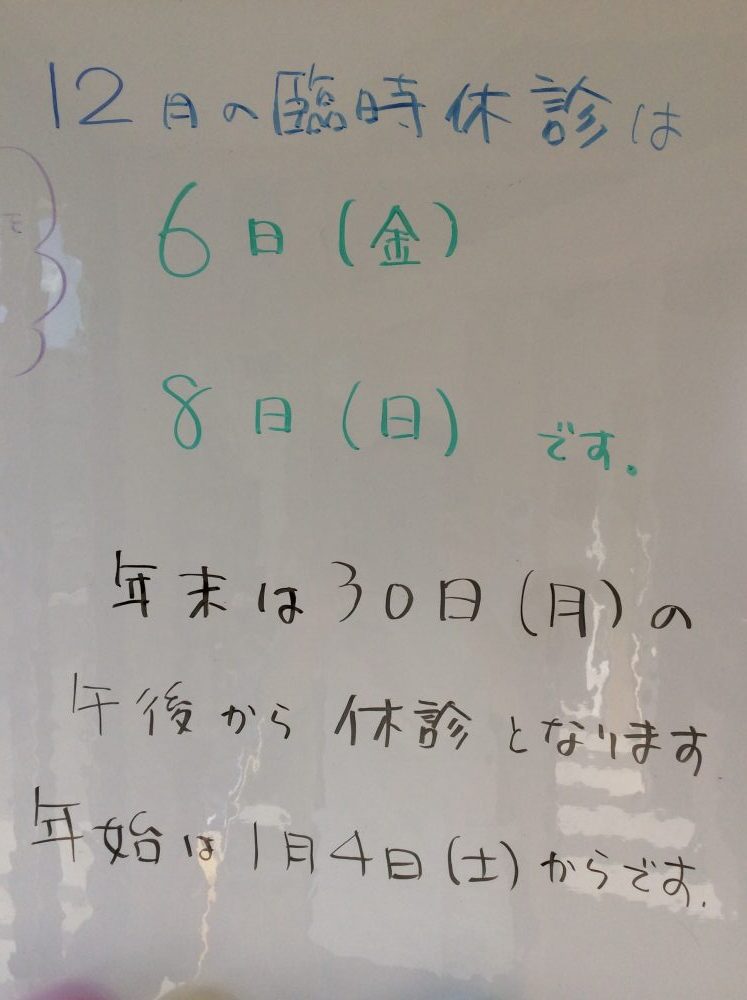 12月の臨時休診は
6日(金)
8日(日) です.
年末は30日(月)の
午後から休診となります
年始は1月4日(土)からです.